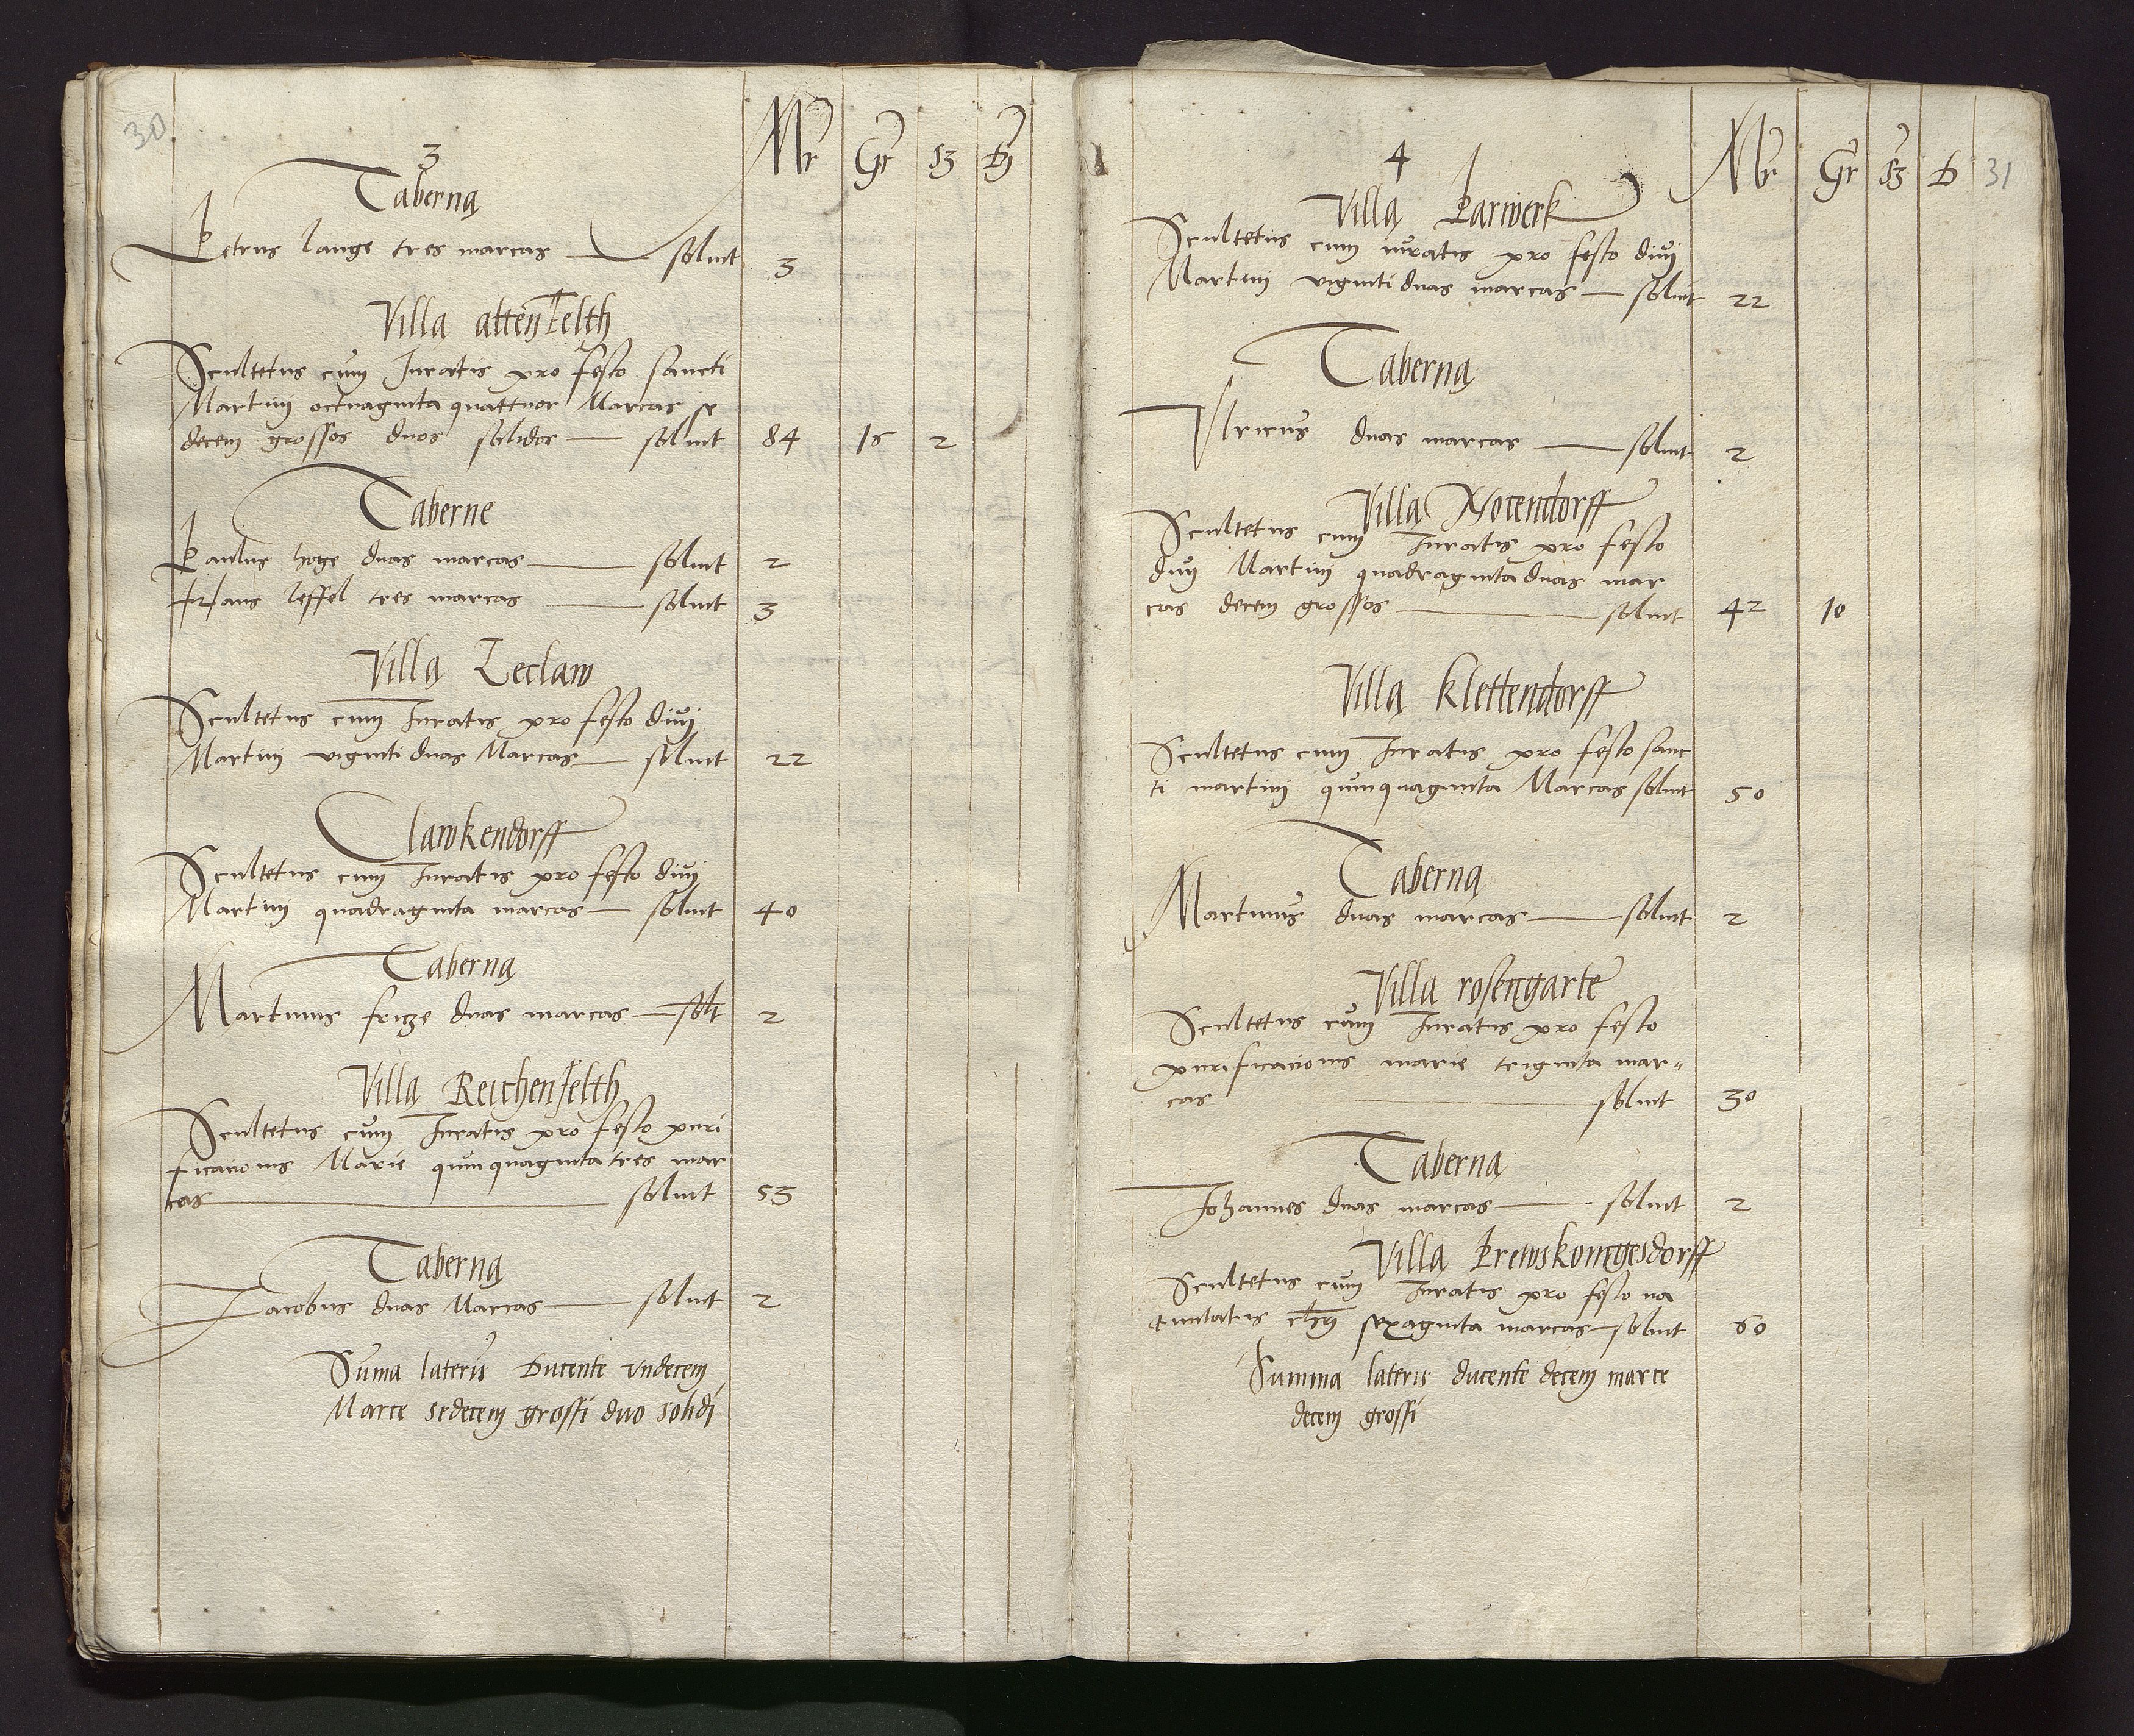 30
3
Mr Gr ss ₰
Taberna
Petrus lange tres marcas — soluit 3
Villa altenfelth
Scultetus cum Juratis pro festo sancti
Martini octuaginta quattuor Marcas se
decem grossos duos solidos — soluit 84 16 2
Taberne
Paulus hoge duas marcas — soluit 2
Hans leffel tres marcas — soluit 3
Villa Leclaw
Scultetus cum Juratis pro festo diui
Martini viginti duas Marcas — soluit 22
Clawkendorff
Scultetus cum Juratis pro festo diui
Martini quadraginta marcas — soluit 40
Taberna
Martinus fricze duas marcas — solt 2
Villa Reichenfelth
Scultetus cum Juratis pro festo puri
ficacionis Marie quinquaginta tres mar
cas — soluit 53
Taberna
Jacobus duas Marcas — soluit 2
Suma lateris ducente vndecem
Marce sedecem grossi duo solidi
31
4
Mr Gr ss ₰
Villa Parwerk
Scultetus cum iuratis pro festo diui
Martini viginti duas marcas — soluit 22
Taberna
Vlricus duas marcas — soluit 2
Villa Notendorff
Scultetus cum Juratis pro festo
diui Martini quadraginta duas mar
cas decem grossos — soluit 42 10
Villa Klettendorff
Scultetus cum Juratis pro festo sanc
ti martini quinquaginta Marcas soluit 50
Taberna
Martinus duas marcas — soluit 2
Villa rosengarte
Scultetus cum Juratis pro festo
purificacionis marie triginta mar-
cas — soluit 30
Taberna
Johannes duas marcas — soluit 2
Villa Prewskonigesdorff
Scultetus cum Juratis pro festo na
tiuitatis chri sexaginta marcas — soluit 60
Summa lateris ducente decem marce
decem grossi